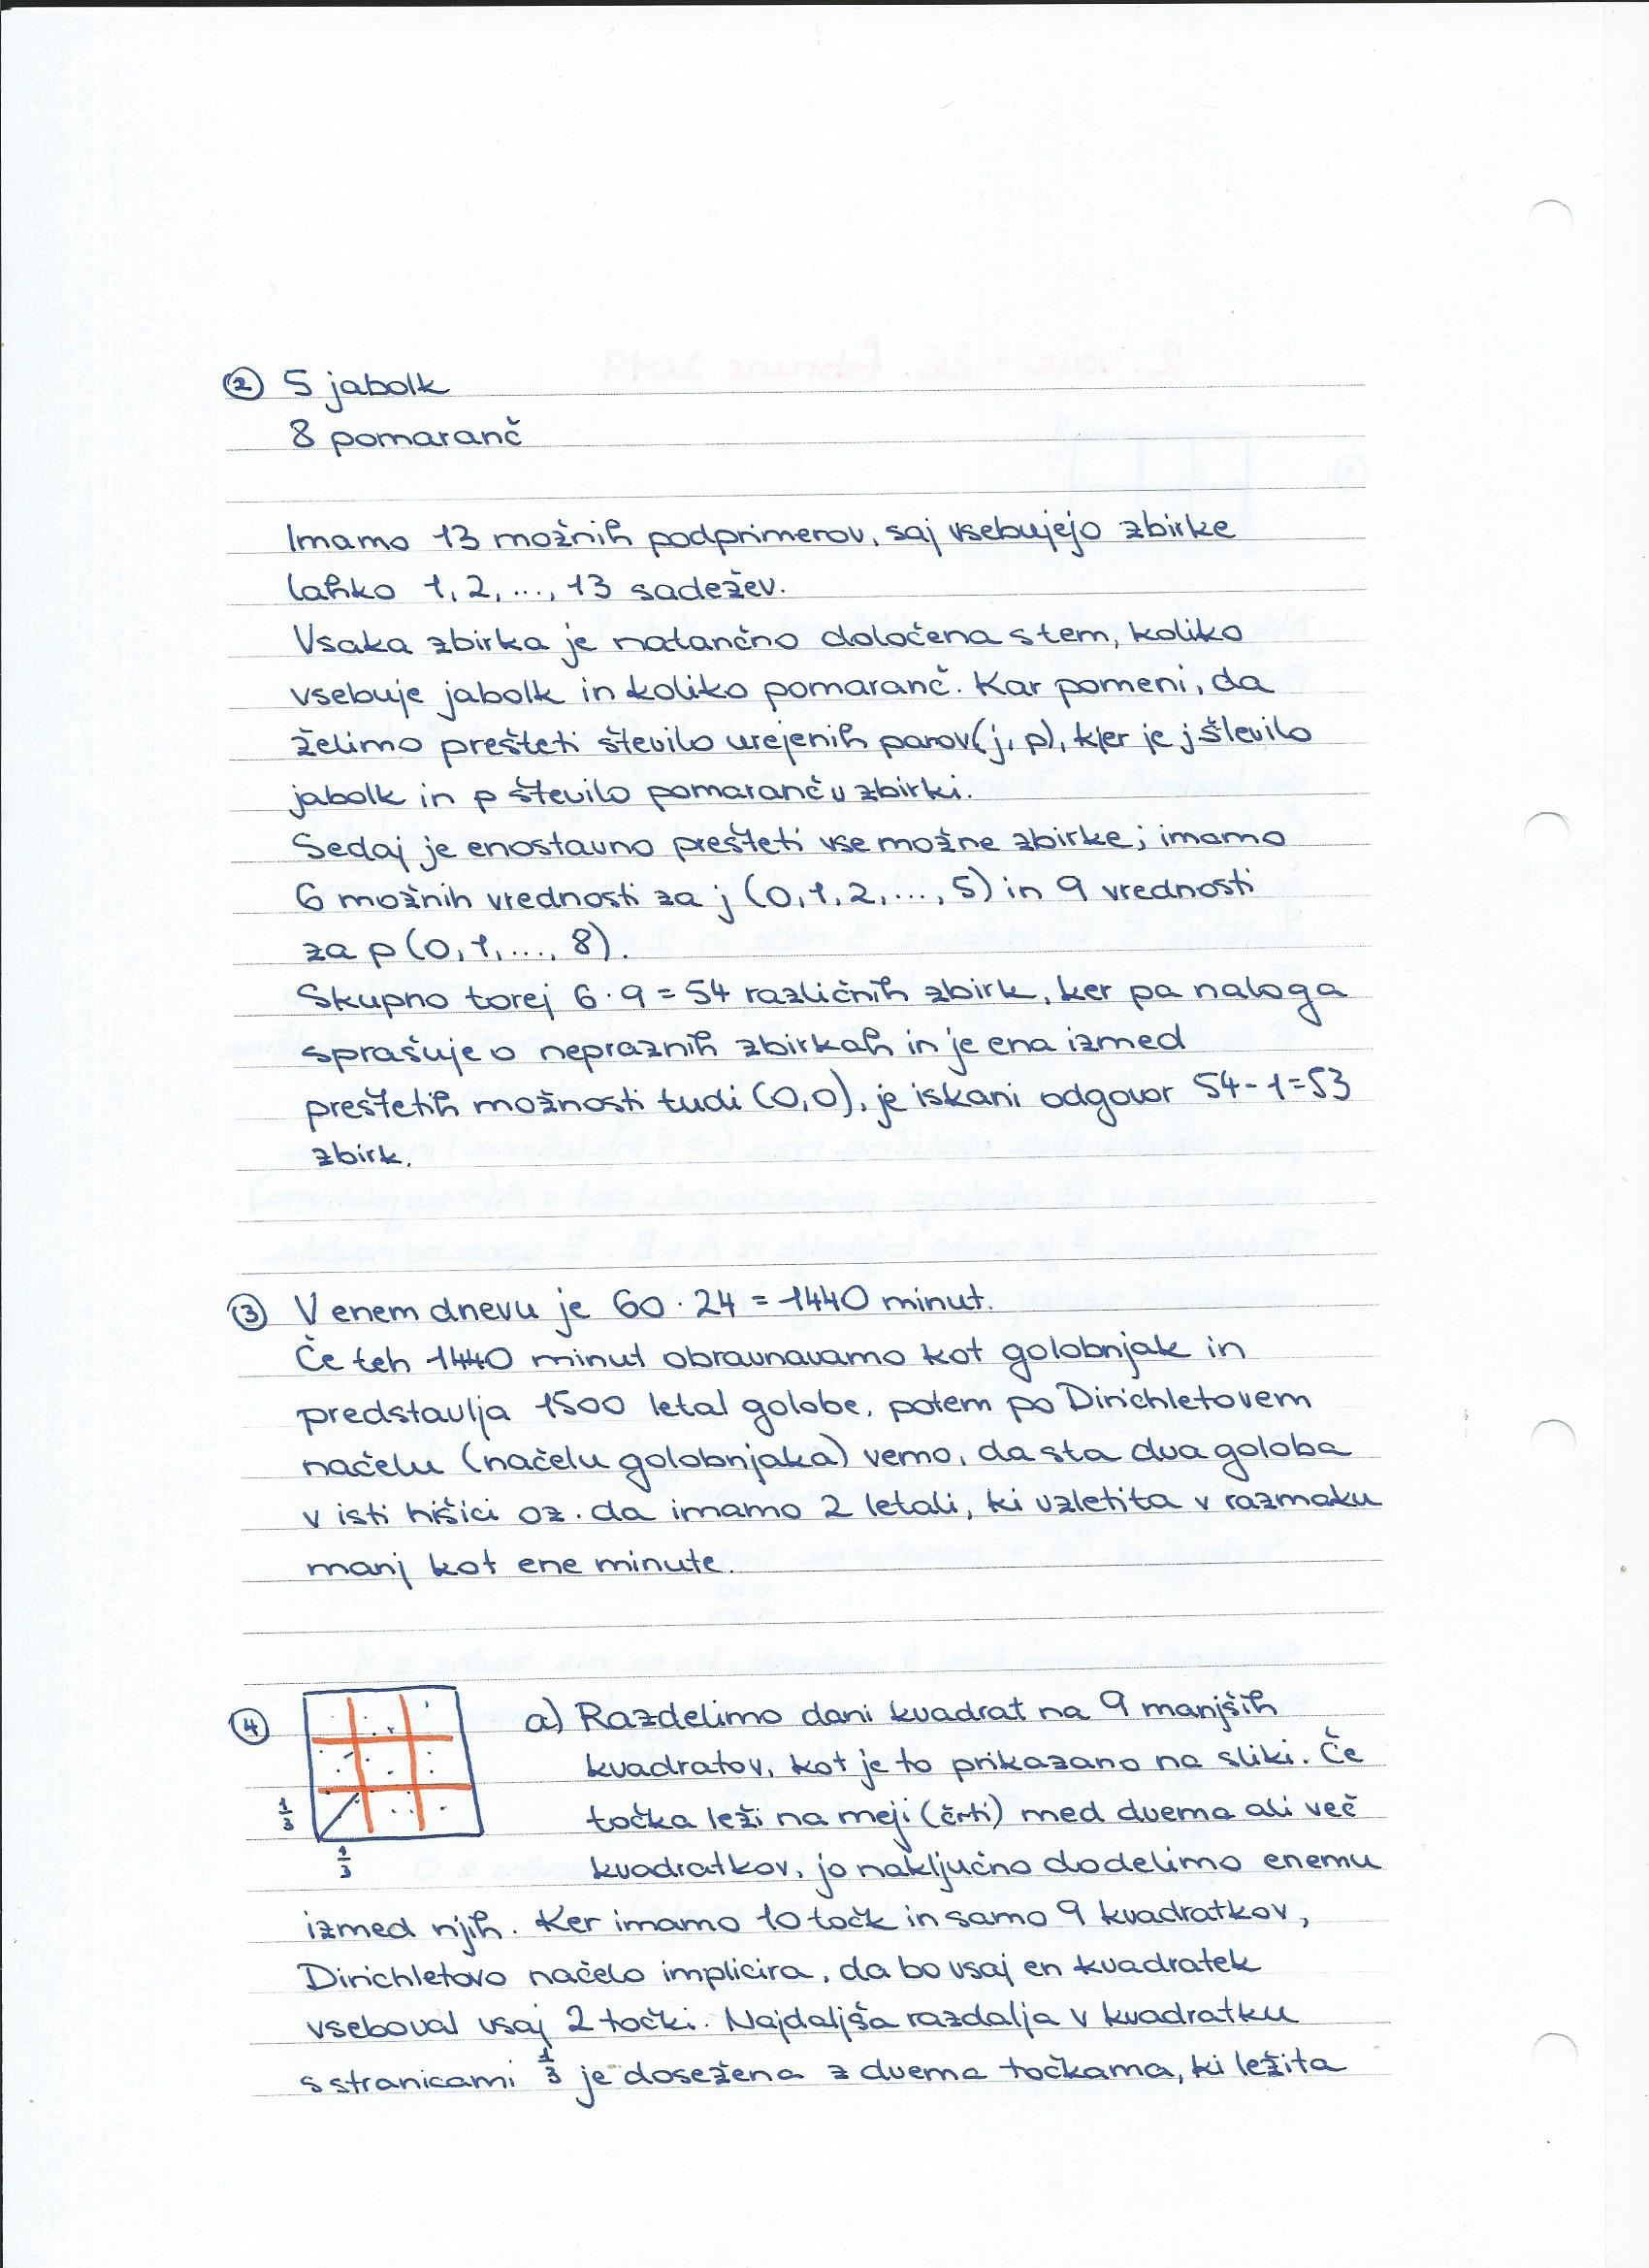 ② 5 jabolk
8 pomaranč
Imamo 13 možnih podprimerov, saj vsebujejo zbirke
lahko 1, 2, ..., 13 sadežev.
Vsaka zbirka je natančno določena s tem, koliko
vsebuje jabolk in koliko pomaranč. Kar pomeni, da
želimo prešteti število urejenih parov (j, p), kjer je j število
jabolk in p število pomaranč v zbirki.
Sedaj je enostavno prešteti vse možne zbirke; imamo
6 možnih vrednosti za j (0, 1, 2, ..., 5) in 9 vrednosti
za p (0, 1, ..., 8).
Skupno torej 6 · 9 = 54 različnih zbirk, ker pa naloga
sprašuje o nepraznih zbirkah in je ena izmed
preštetih možnosti tudi (0,0), je iskani odgovor 54 - 1 = 53
zbirk.
③ V enem dnevu je 60 · 24 = 1440 minut.
Če teh 1440 minut obravnavamo kot golobnjak in
predstavlja 1500 letal golobe, potem po Dirichletovem
načelu (načelu golobnjaka) vemo, da sta dva goloba
v isti hišici oz. da imamo 2 letali, ki vzletita v razmaku
manj kot ene minute.
④ a) Razdelimo dani kvadrat na 9 manjših
kvadratov, kot je to prikazano na sliki. Če
1/3 točka leži na meji (črti) med dvema ali več
1/3 kvadratkov, jo naključno dodelimo enemu
izmed njih. Ker imamo 10 točk in samo 9 kvadratkov,
Dirichletovo načelo implicira, da bo vsaj en kvadratek
vseboval vsaj 2 točki. Najdaljša razdalja v kvadratku
s stranicami 1/3 je dosežena z dvema točkama, ki ležita